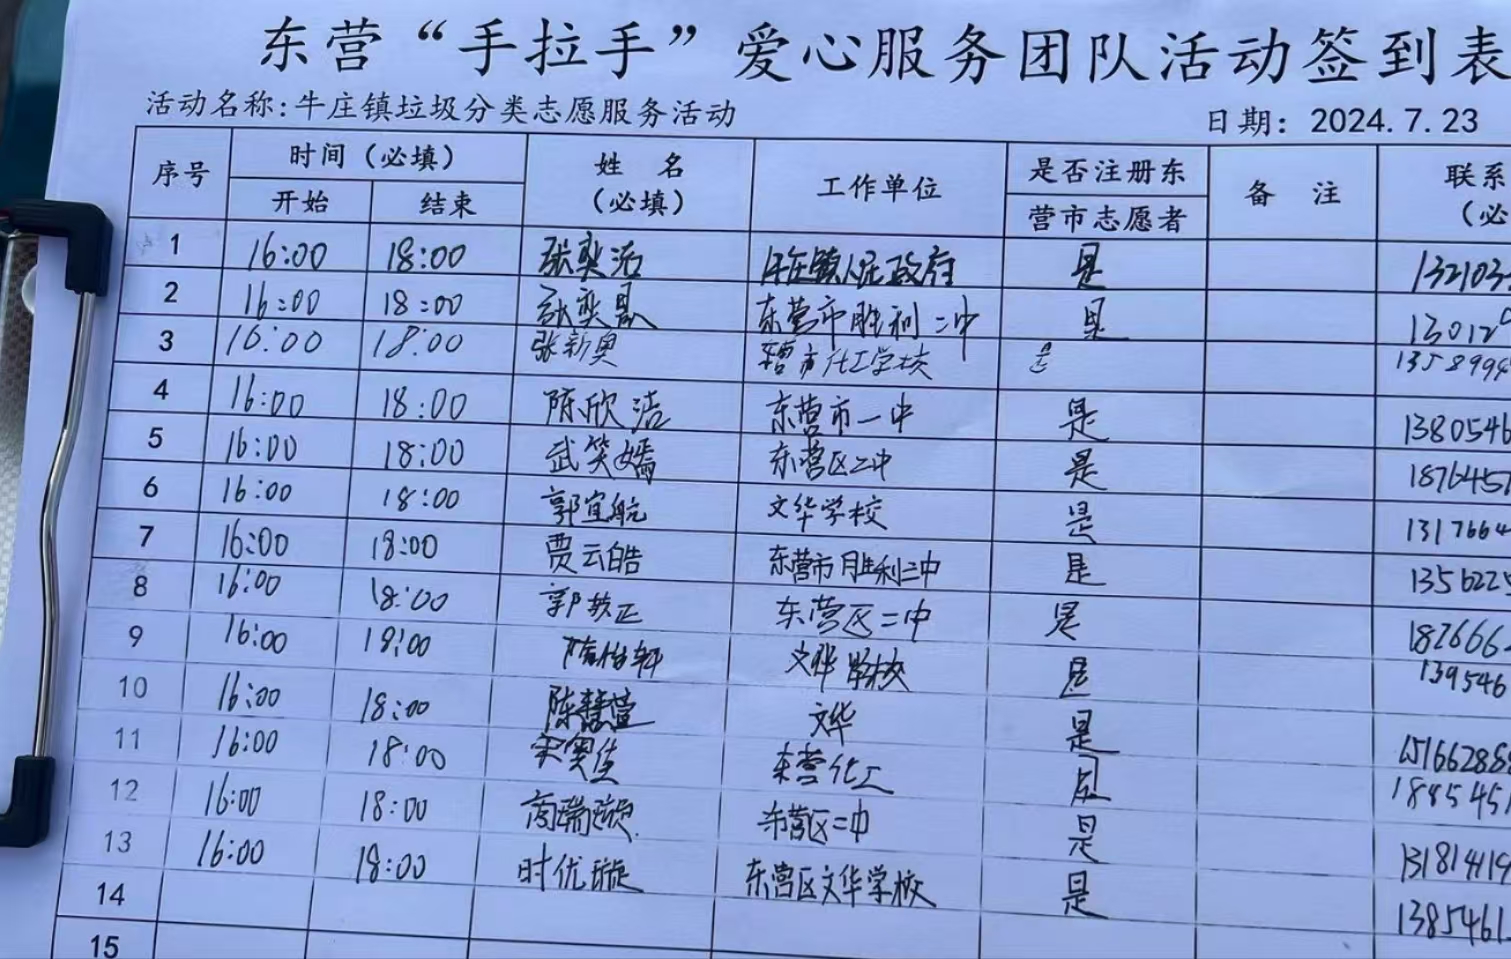 东营“手拉手”爱心服务团队活动签到表
活动名称:牛庄镇垃圾分类志愿服务活动 日期: 2024.7.23
序号 时间（必填） 姓 名（必填） 工作单位 是否注册东营市志愿者 备 注 联系
开始 结束
1 16:00 18:00 张奕洁 牛庄镇人民政府 是 132103
2 16:00 18:00 张奕晟 东营市胜利二中 是 13012
3 16:00 18:00 张新奥 东营市化工学校 是 1358994
4 16:00 18:00 陈欣洁 东营市一中 是 1380546
5 16:00 18:00 武笑嫣 东营区二中 是 1876451
6 16:00 18:00 郭宜航 文华学校 是 1317664
7 16:00 18:00 贾云皓 东营市胜利二中 是 1356225
8 16:00 18:00 郭 正 东营区二中 是 182666
9 16:00 18:00 轩 文华学校 是 139546
10 16:00 18:00 陈慧萱 文华 是 15166288
11 16:00 18:00 宋奕佳 东营化工 是 188545
12 16:00 18:00 商瑞璇 东营区二中 是 13181419
13 16:00 18:00 时优璇 东营区文华学校 是 1385461
14
15